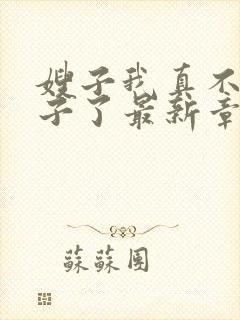 嫂子我真不
子了最新章
蘇蘇團